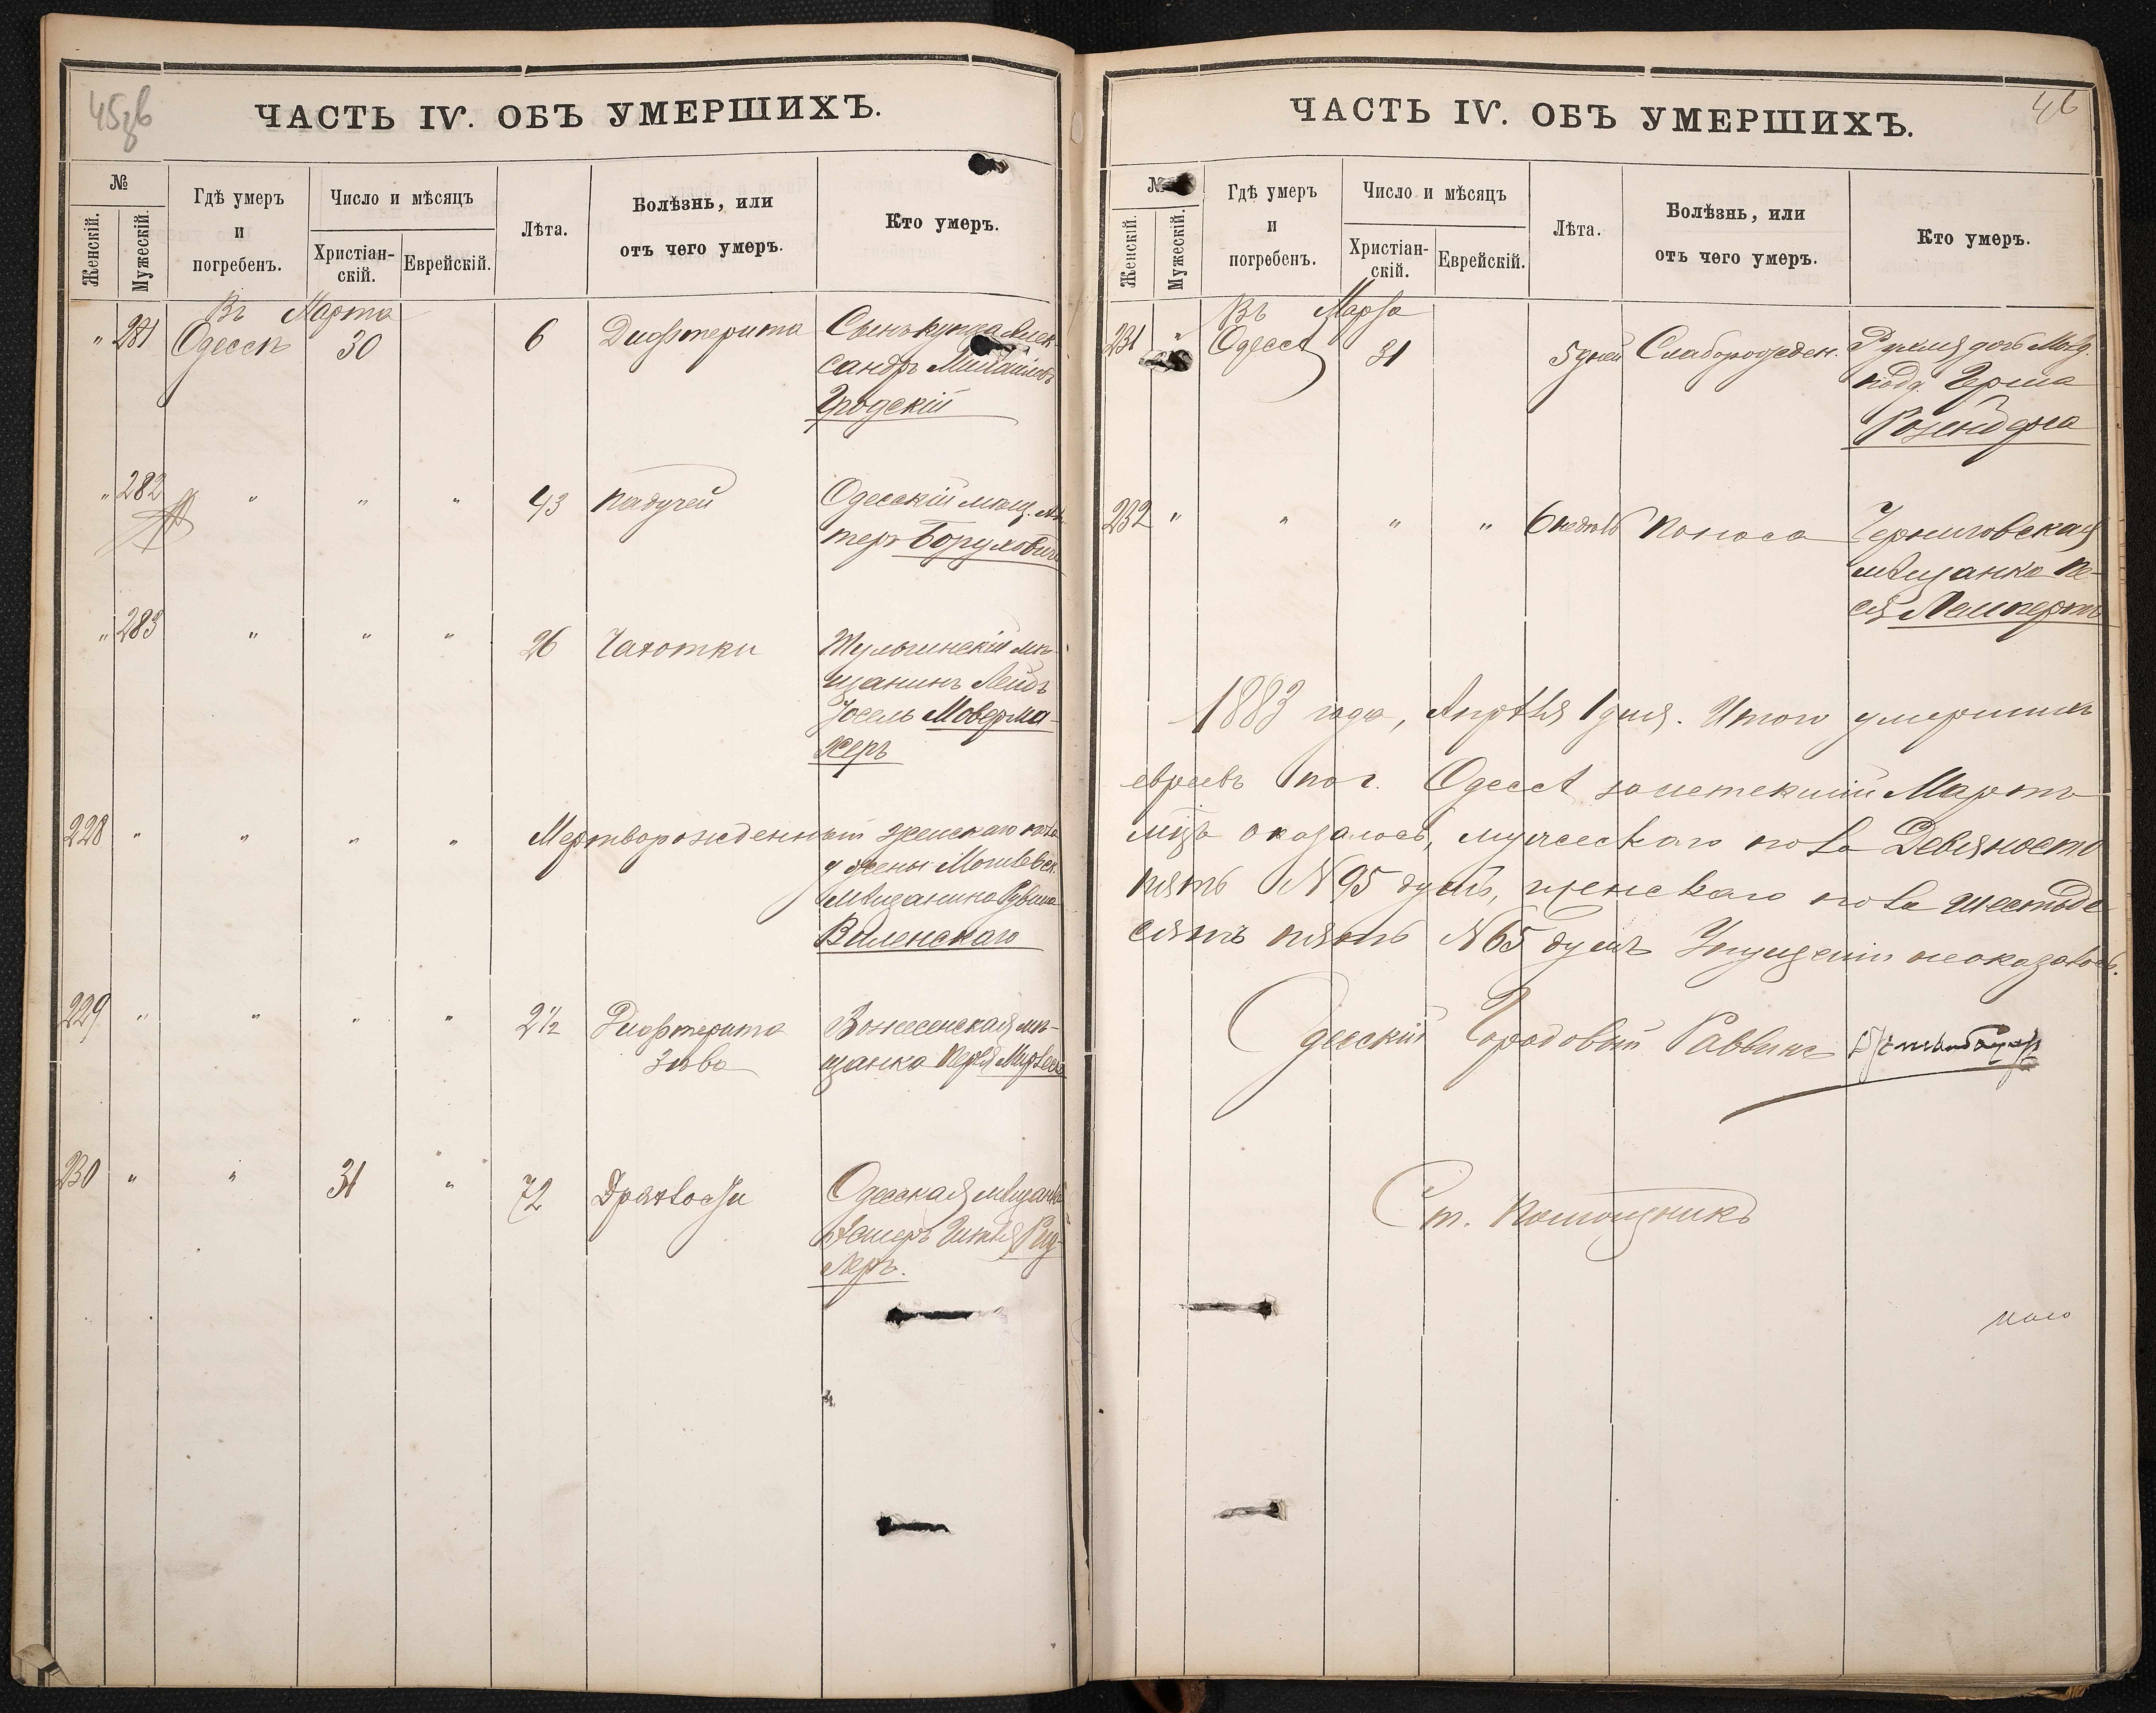 45зв
ЧАСТЬ IV. ОБЪ УМЕРШИХЪ.
№
Женскій.
Мужескій.
Гдѣ умеръ
и
погребенъ.
Число и мѣсяцъ
Христіан-
скій.
Еврейскій.
Лѣта.
Болѣзнь, или
отъ чего умеръ.
Кто умеръ.
Въ Марта
" 281 Одессѣ 30 6 Дифтерита Сынъ купца Алек-
сандръ Михайловъ
Гродскій
" 282 " " " 43 падучей Одесскій мѣщ.
Борухович
" 283 " " " 26 Чахотки Тульчинскій мѣ-
щанинъ Лейбъ
Іосель Моверма-
херъ
228 " " " " Мертворожденный женскаго пола
у жены Могилевск.
мѣщанина Рувина
Виленскаго
229 " " " " 2 1/2 Дифтерита Вознесенская мѣ-
зѣва щанка Перля
230 " " 31 " 72 Дряхлости Одесская мѣщанка
леръ.
46
ЧАСТЬ IV. ОБЪ УМЕРШИХЪ.
№
Женскій.
Мужескій.
Гдѣ умеръ
и
погребенъ.
Число и мѣсяцъ
Христіан-
скій.
Еврейскій.
Лѣта.
Болѣзнь, или
отъ чего умеръ.
Кто умеръ.
Въ Марта
231 " Одессѣ 31 5 дней Слаборожден. Рухля дочь
подд. Герша
232 " " " " 6 недѣль Поноса Черниговская
мѣщанка Пе-
ся Ламперт
1883 года, Апрѣля 1 дня. Итого умершихъ
евреевъ по г. Одессѣ за истекшій Мартъ
мцъ оказалось, мужескаго пола Девяносто
пять N 95 душъ, женскаго пола шестьде-
сятъ пять N 65 душъ Упущеній неоказалось.
Одесскій Городовой Раввинъ
Ст. Помощникъ